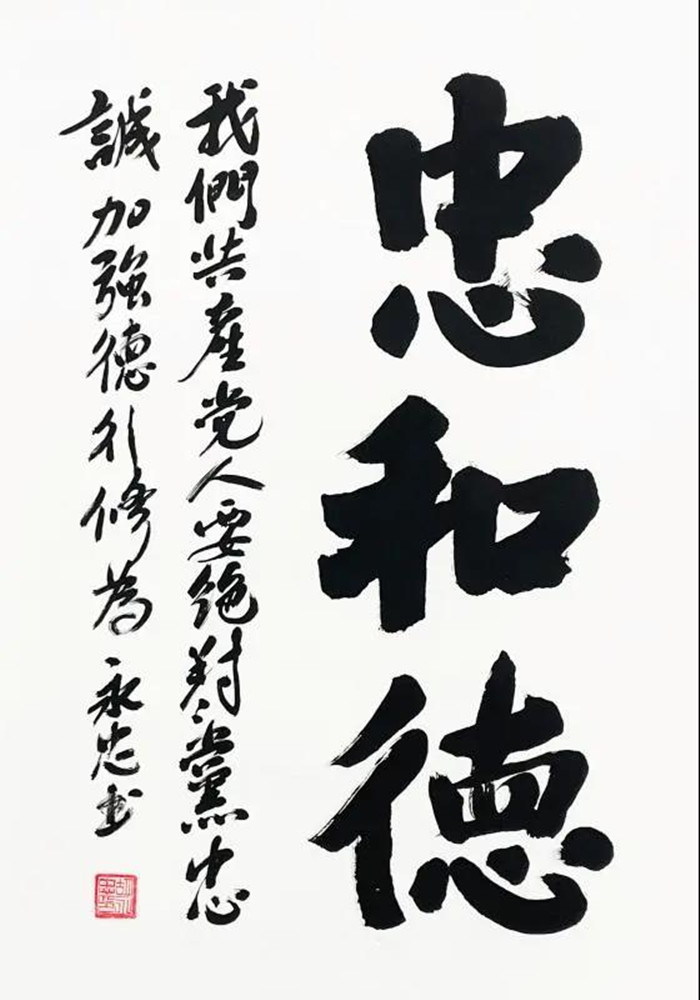 忠和德
我們共產党人要绝對對黨忠
誠加強德行修為永忠书